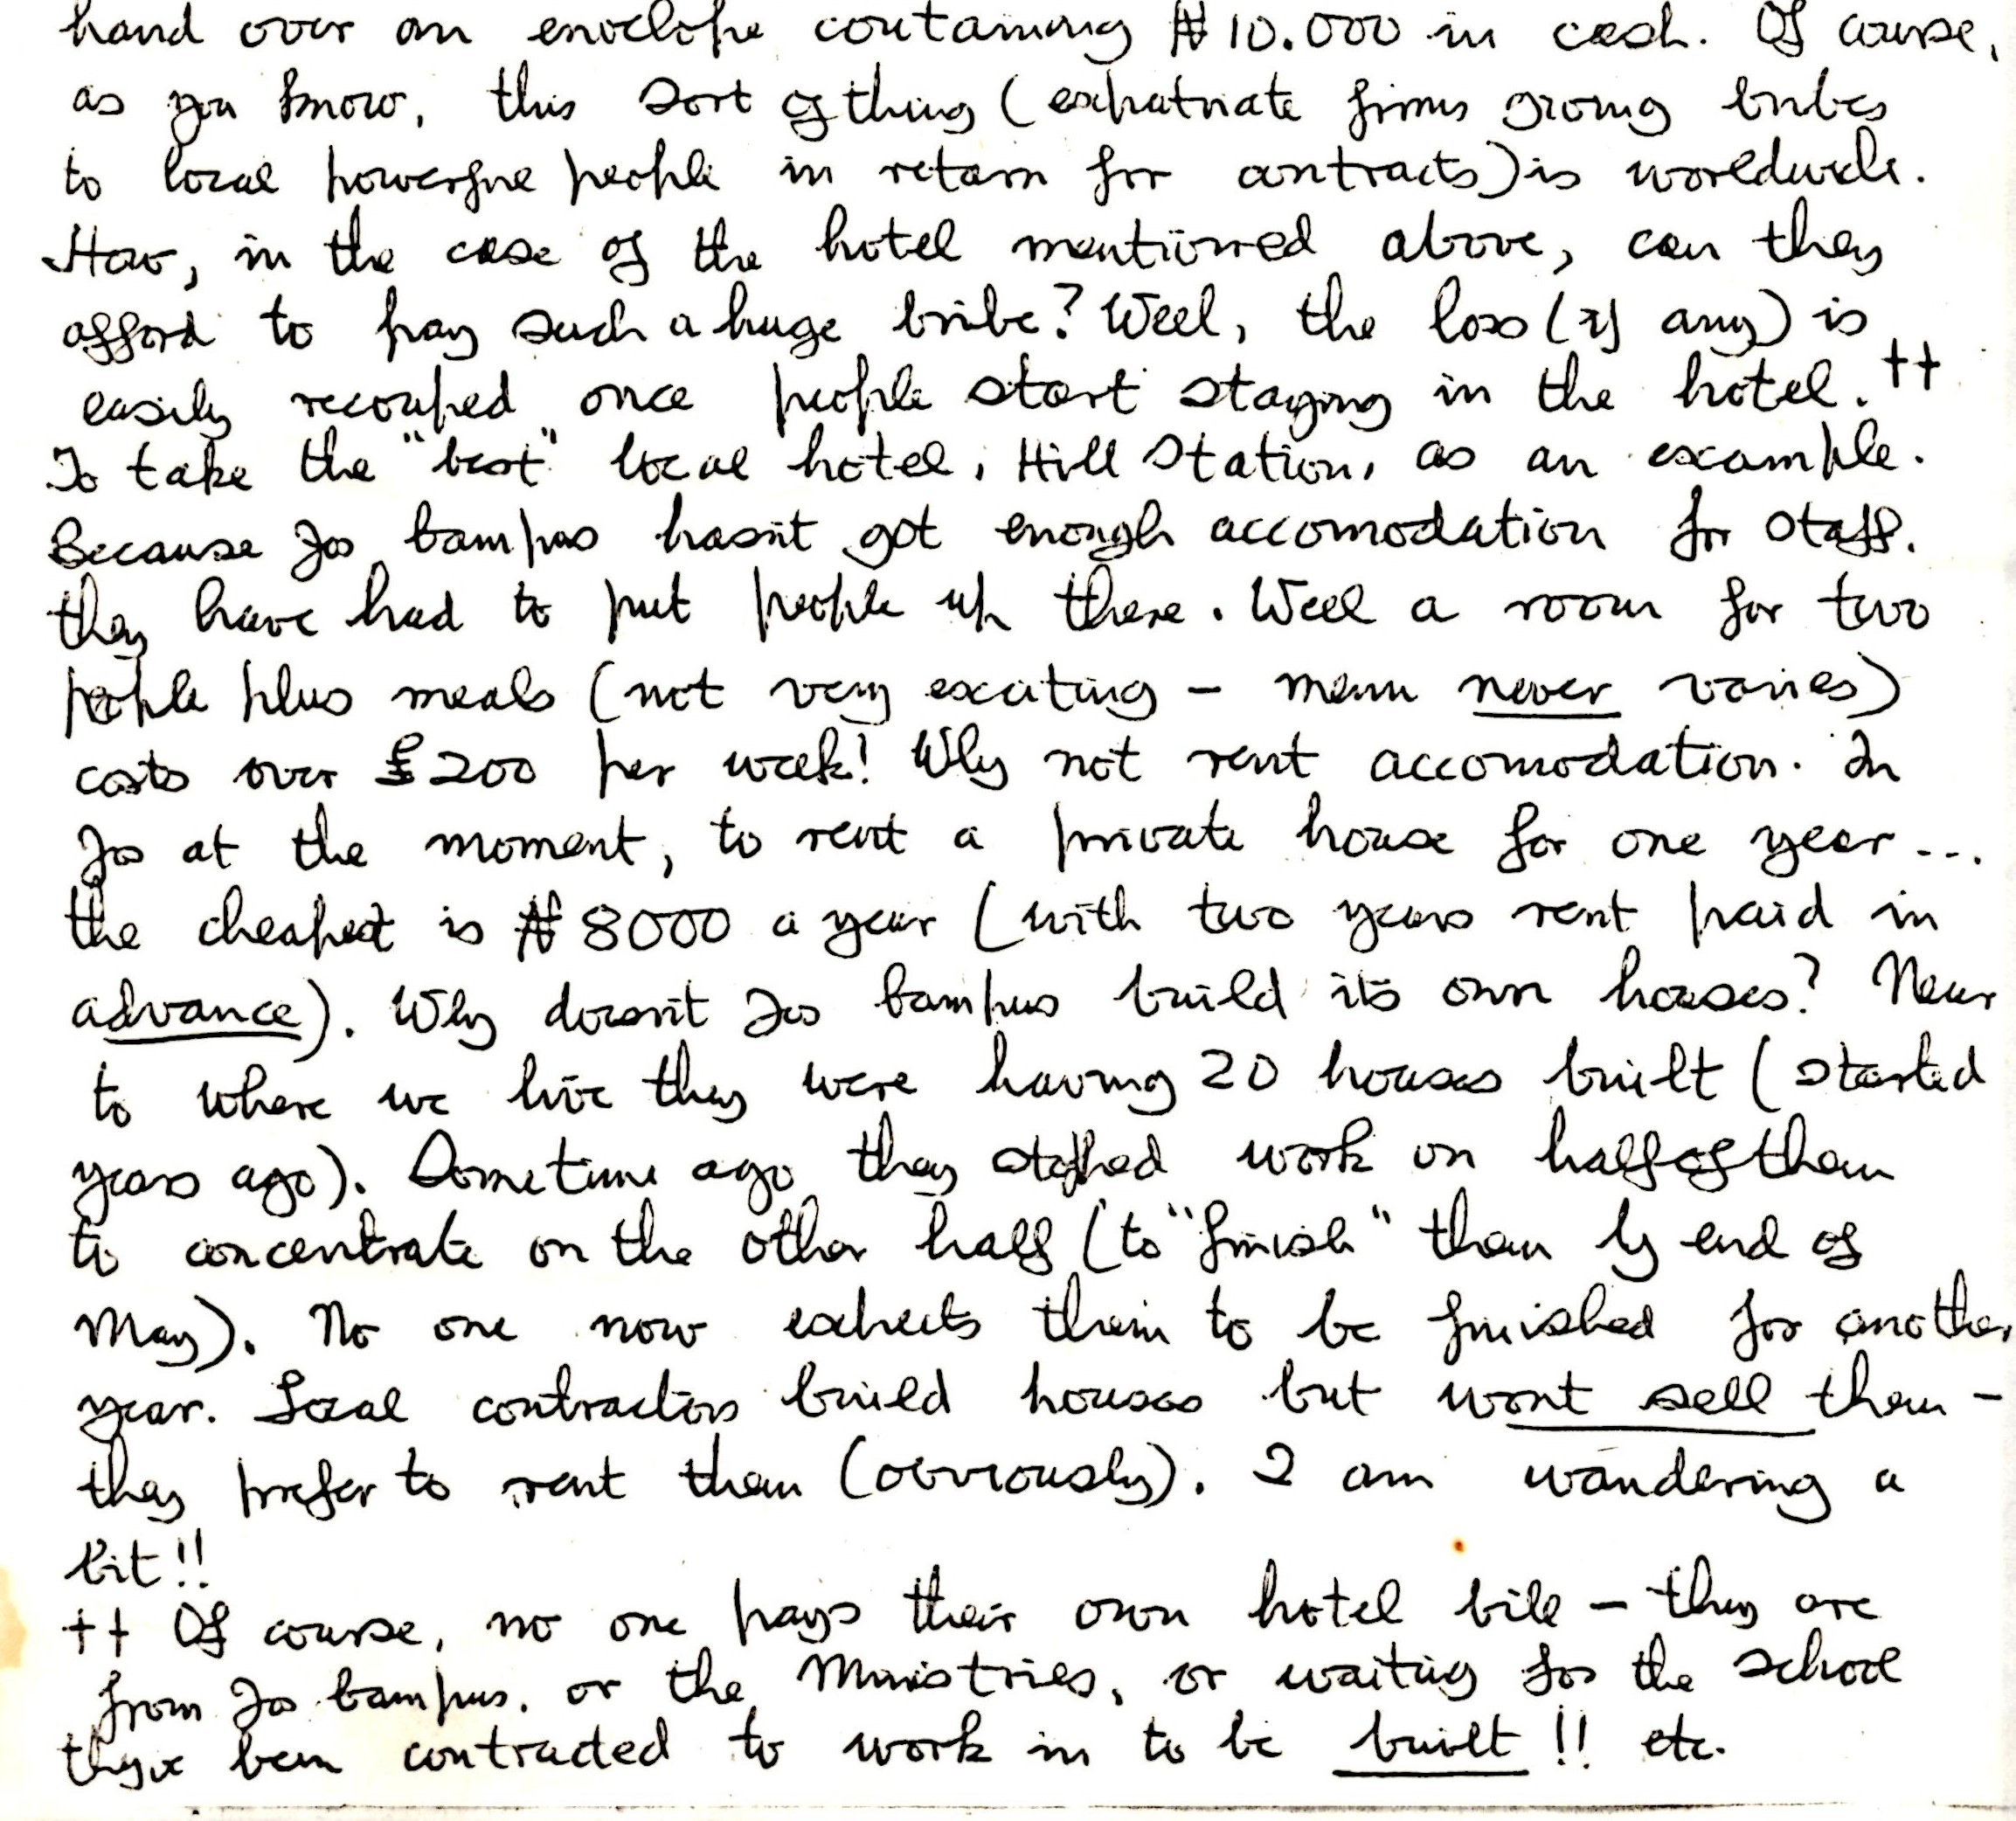 hand over an envelope containing ₦10.000 in cash. Of course,
as you know, this sort of thing (expatriate firms giving bribes
to local powerful people in return for contracts) is worldwide.
How, in the case of the hotel mentioned above, can they
afford to pay such a huge bribe? Well, the loss (if any) is
easily recouped once people start staying in the hotel. ++
To take the "best" local hotel, Hill Station, as an example.
Because Jos Campus hasn't got enough accomodation for staff.
they have had to put people up there. Well a room for two
people plus meals (not very exciting - menu never varies)
costs over £200 per week! Why not rent accomodation. In
Jos at the moment, to rent a private house for one year ...
the cheapest is ₦8000 a year (with two years rent paid in
advance). Why doesn't Jos Campus build its own houses? Near
to where we live they were having 20 houses built (started
years ago). Sometime ago they stopped work on half of them
to concentrate on the other half (to "finish" them by end of
May). No one now expects them to be finished for another
year. Local contractors build houses but wont sell them -
they prefer to rent them (obviously). I am wandering a
bit!!
++ Of course, no one pays their own hotel bill - they are
from Jos Campus, or the Ministries, or waiting for the school
they've been contracted to work in to be built!! etc.